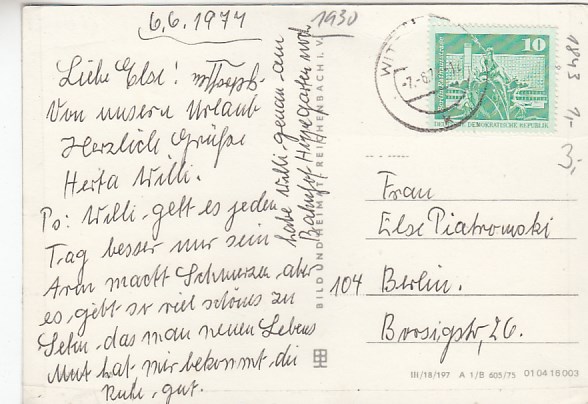 6.6.1977
1930
Liebe Else! u. Joseph.
Von unsern Urlaub
Herzlich Grüße
Herta Willi.
Ps: Willi, geht es jeden
Tag besser nur sein
Arm macht Schmerzen aber
es, gebt so viel schönes zu
Sehn, das man neuen Lebens
Mut hat, mir bekommt die
Ruhe, gut.
habe Willi, genau am
Bahnhof
BILD UND HEIMAT REICHENBACH I. V.
10
DEUTSCHE DEMOKRATISCHE REPUBLIK
1843
1,-
3,-
Frau
Else Piatrowski
104 Berlin.
Borsigstr, 26.
III/18/197 A 1/B 605/75 01 04 18 003